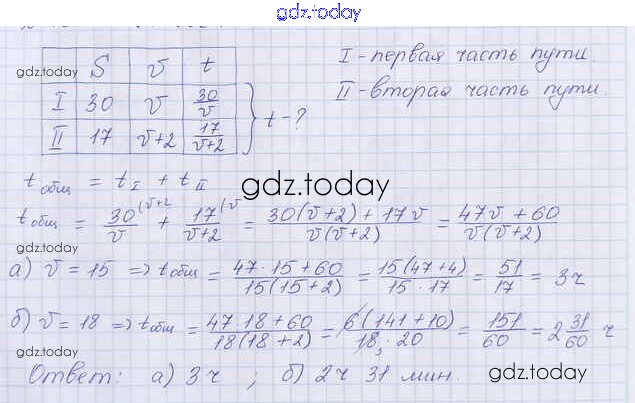 gdz.today
S v t
I 30 v 30/v
II 17 v+2 17/(v+2) } t - ?
I - первая часть пути.
II - вторая часть пути.
gdz.today
gdz.today
gdz.today
t общ = t I + t II
gdz.today
t общ = 30/v (v+2 + 17/(v+2) (v = (30(v+2) + 17v)/(v(v+2)) = (47v + 60)/(v(v+2))
gdz.today
gdz.today
а) v = 15 => t общ = (47·15+60)/(15(15+2)) = (15(47+4))/(15·17) = 51/17 = 3 ч
б) v = 18 => t общ = (47·18+60)/(18(18+2)) = (6(141+10))/(18₃·20) = 151/60 = 2 31/60 ч
gdz.today
gdz.today
Ответ: а) 3 ч ; б) 2 ч 31 мин.
gdz.today